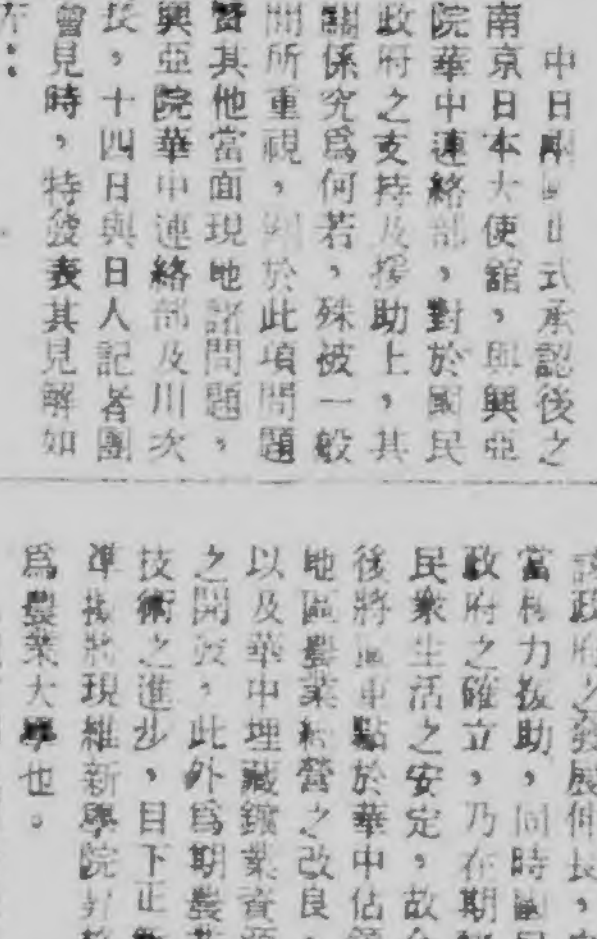 中日兩國正式承認後之
南京日本大使館，與興亞
院華中連絡部，對於國民
政府之支持及援助上，其
關係究爲何若，殊被一般
間所重視，關於此項問題
暨其他當面現地諸問題，
興亞院華中連絡部及川次
長，十四日與日人記者團
會見時，特發表其見解如
該政府之發展伸長，
當極力援助，同時
政府之確立，乃在期
民衆生活之安定，故
後將 重點於華中佔
地區農業經營之改良，
以及華中埋藏鑛業資
之開發，此外爲期農
技術之進步，目下正
準備將現維新學院
爲農業大學也。